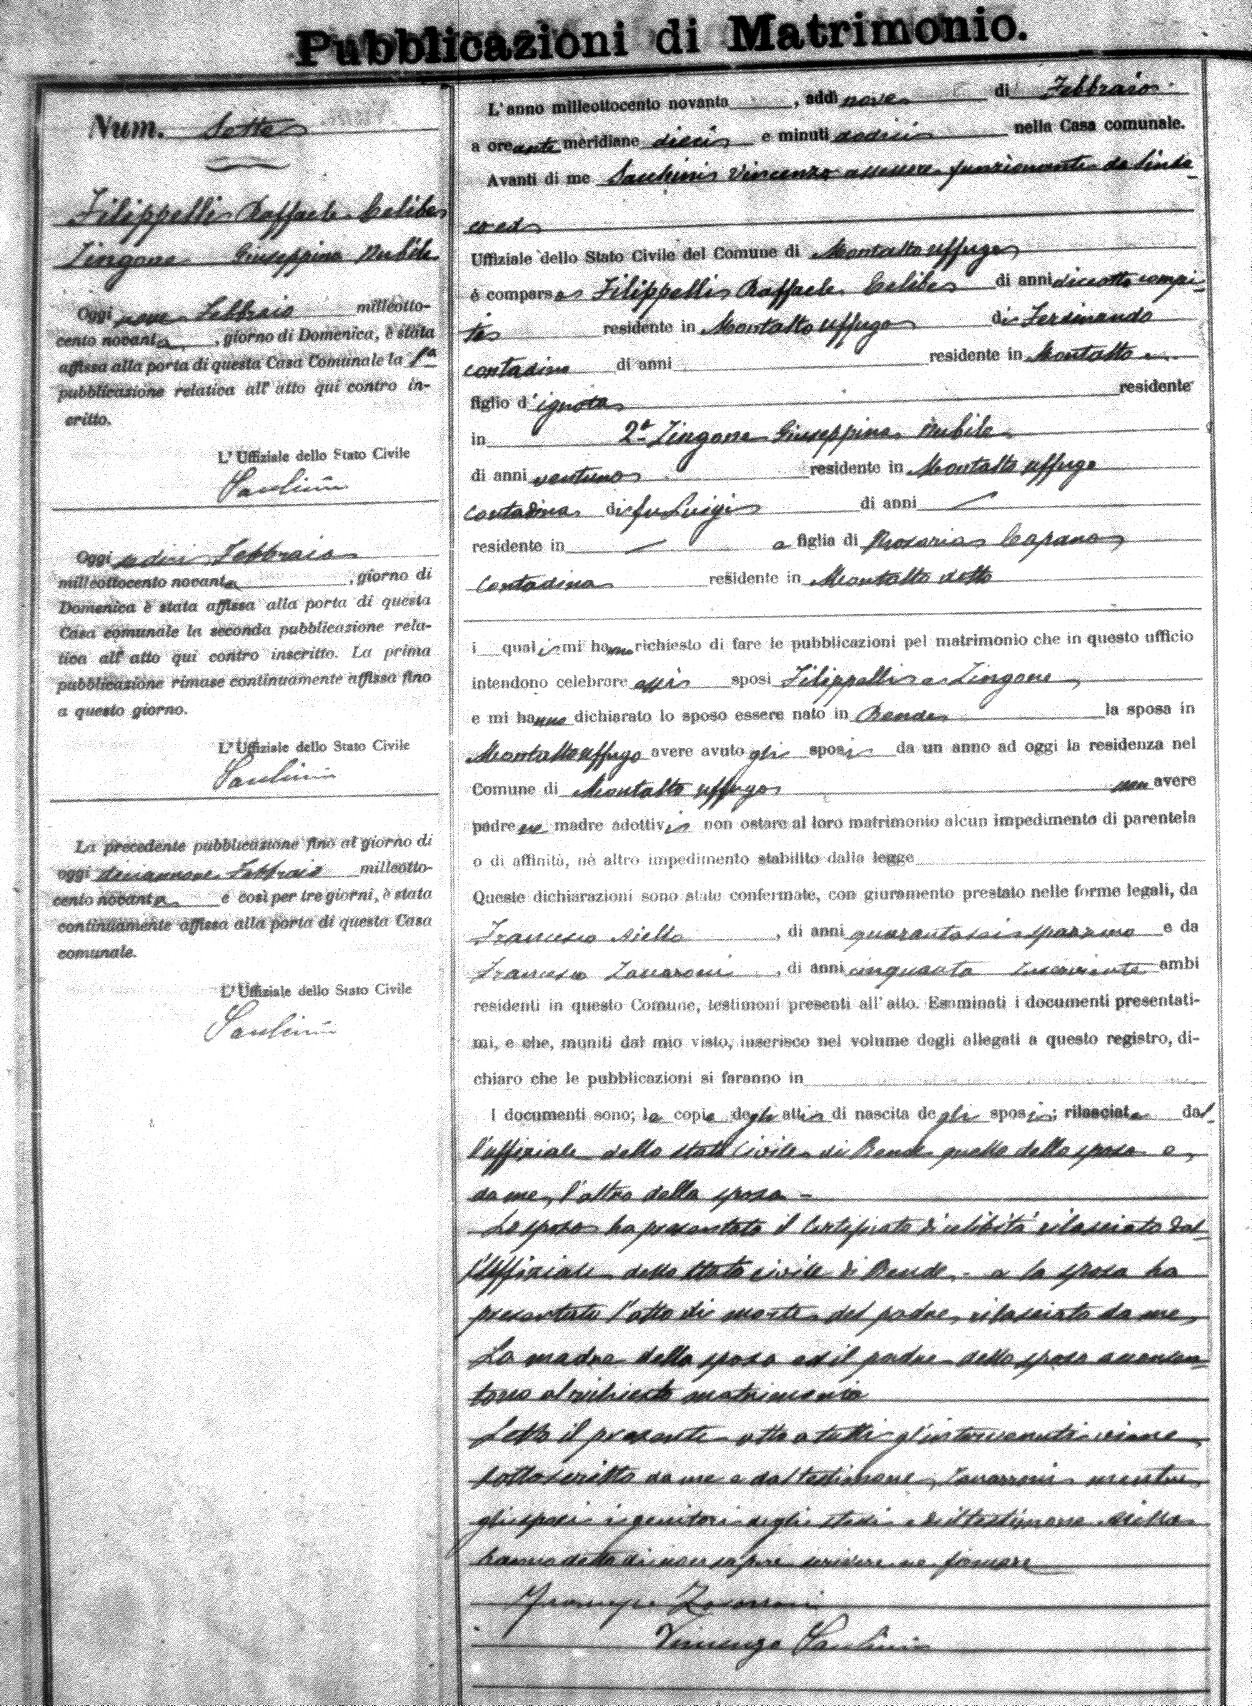 Pubblicazioni di Matrimonio.
Num. Sette
Filippelli Raffaele Celibe
Zingone Giuseppina Nubile
Oggi nove Febbraio milleotto-
cento novanta, giorno di Domenica, è stata
affissa alla porta di questa Casa Comunale la 1ª
pubblicazione relativa all' atto qui contro in-
critto.
L' Uffiziale dello Stato Civile
Saulini
Oggi sedici Febbraio
milleottocento novanta, giorno di
Domenica è stata affissa alla porta di questa
Casa comunale la seconda pubblicazione rela-
tica all' atto qui contro inscritto. La prima
pubblicazione rimase continuamente affissa fino
a questo giorno.
L' Uffiziale dello Stato Civile
Saulini
La precedente pubblicazione fino al giorno di
oggi diciannove Febbraio milleotto-
cento novanta e così per tre giorni, è stata
continuamente affissa alla porta di questa Casa
comunale.
L' Uffiziale dello Stato Civile
Saulini
L'anno milleottocento novanta, addì nove di Febbraio
a ore ante meridiane dieci e minuti dodici nella Casa comunale.
Avanti di me Saulini Vincenzo assessore funzionante da Sinda-
co ed
Uffiziale dello Stato Civile del Comune di Montalto Uffugo
è comparso Filippelli Raffaele Celibe di anni diciotto compi-
ti residente in Montalto Uffugo di Ferdinando
contadino di anni residente in Montalto e
figlio d'ignota residente
in 2ª Zingone Giuseppina Nubile
di anni ventuno residente in Montalto Uffugo
contadina di fu Luigi di anni
residente in e figlia di Rosaria Capano
Contadina residente in Montalto detto
i quali mi hanno richiesto di fare le pubblicazioni pel matrimonio che in questo ufficio
intendono celebrare essi sposi Filippelli e Zingone
e mi hanno dichiarato lo sposo essere nato in Rende la sposa in
Montalto Uffugo avere avuto gli sposi da un anno ad oggi la residenza nel
Comune di Montalto Uffugo non avere
padre ne madre adottivi non ostare al loro matrimonio alcun impedimento di parentela
o di affinità, nè altro impedimento stabilito dalla legge
Queste dichiarazioni sono state confermate, con giuramento prestato nelle forme legali, da
Francesco Aiello, di anni quarantasei spazzino e da
Francesco Zavarroni, di anni cinquanta Inserviente ambi
residenti in questo Comune, testimoni presenti all' atto. Esaminati i documenti presentati-
mi, e che, muniti dal mio visto, inserisco nel volume degli allegati a questo registro, di-
chiaro che le pubblicazioni si faranno in
I documenti sono; le copie degli atti di nascita degli sposi; rilasciate dal-
l'uffiziale dello stato Civile di Rende quella dello sposo e,
da me, l'altra della sposa -
Lo sposo ha presentato il Certificato di celibità rilasciato dal-
l'Uffiziale dello Stato civile di Rende - e la sposa ha
presentato l'atto di morte del padre, rilasciato da me,
La madre della sposa ed il padre dello sposo acconsen-
tono al richiesto matrimonio
Letto il presente atto a tutti gl'intervenuti viene
sottoscritto da me e dal testimone Zavarroni mentre
gli sposi i genitori degli stessi ed il testimone Aiello
hanno detto di non sapere scrivere ne firmare
Zavarroni
Vincenzo Saulini